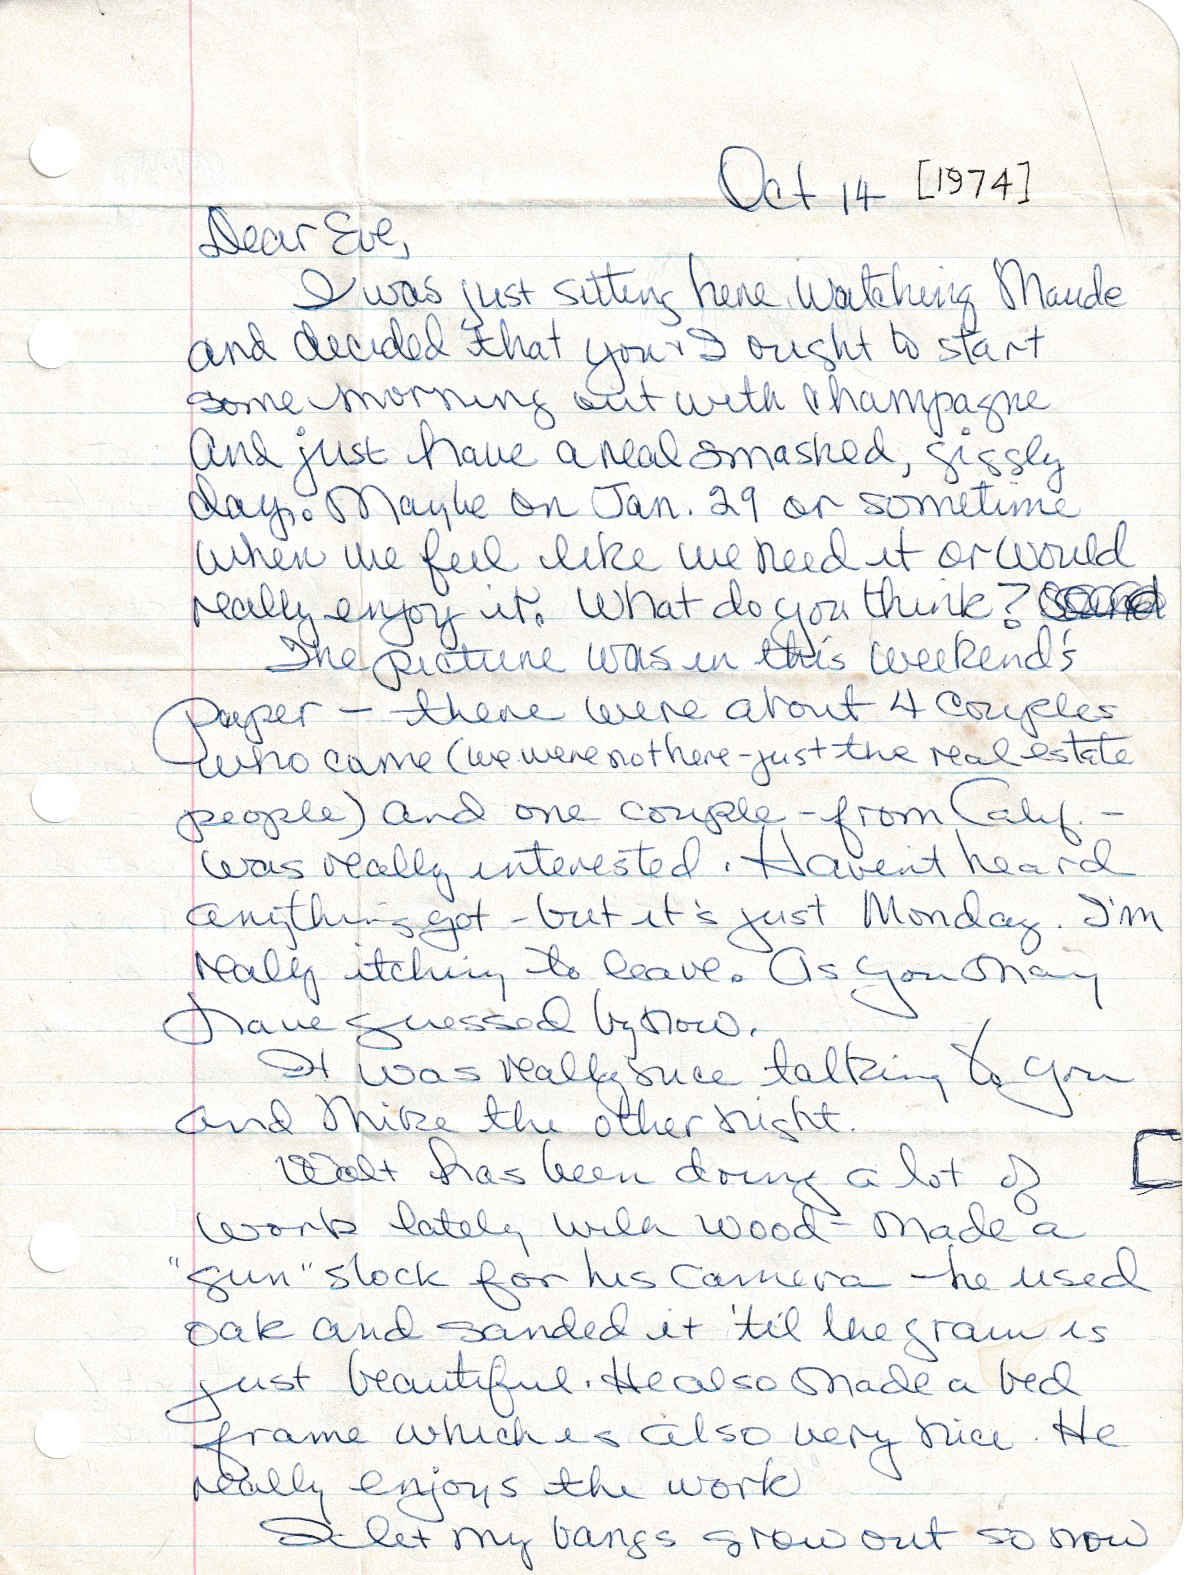 Oct 14 [1974]
Dear Eve,
I was just sitting here watching Maude
and decided that you & I ought to start
some morning out with champagne
and just have a real smashed, giggly
day. Maybe on Jan. 29 or sometime
when we feel like we need it or would
really enjoy it. What do you think?
The picture was in this weekend's
paper - there were about 4 couples
who came (we were not here - just the real estate
people) and one couple - from Calif. -
was really interested. Haven't heard
anything yet - but it's just Monday. I'm
really itching to leave. As you may
have guessed by now.
It was really nice talking to you
and Mike the other night.
Walt has been doing a lot of
work lately with wood - made a
"gun" stock for his camera - he used
oak and sanded it 'til the grain is
just beautiful. He also made a bed
frame which is also very nice. He
really enjoys the work
I let my bangs grow out so now